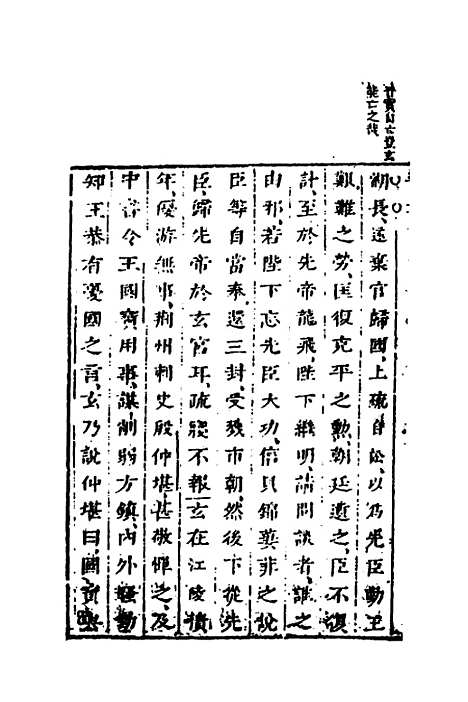 湖長遂棄官歸國上疏自訟以乃先臣勤王
艱難之勞匡復克平之勲朝廷遺之臣不復
計至於先帝龍飛陛下繼明請問談者誰之
由邪若陛下忘先臣大功信貝錦萋菲之說
臣等自當奉還三封受戮市朝然後下從先
臣歸先帝於玄宮耳疏寢不報玄在江陵積
年優游無事荆州刺史殷仲堪甚敬憚之及
中書令王國寶用事謀削弱方鎮内外騷動
知王恭有憂國之言玄乃說仲堪曰國寶